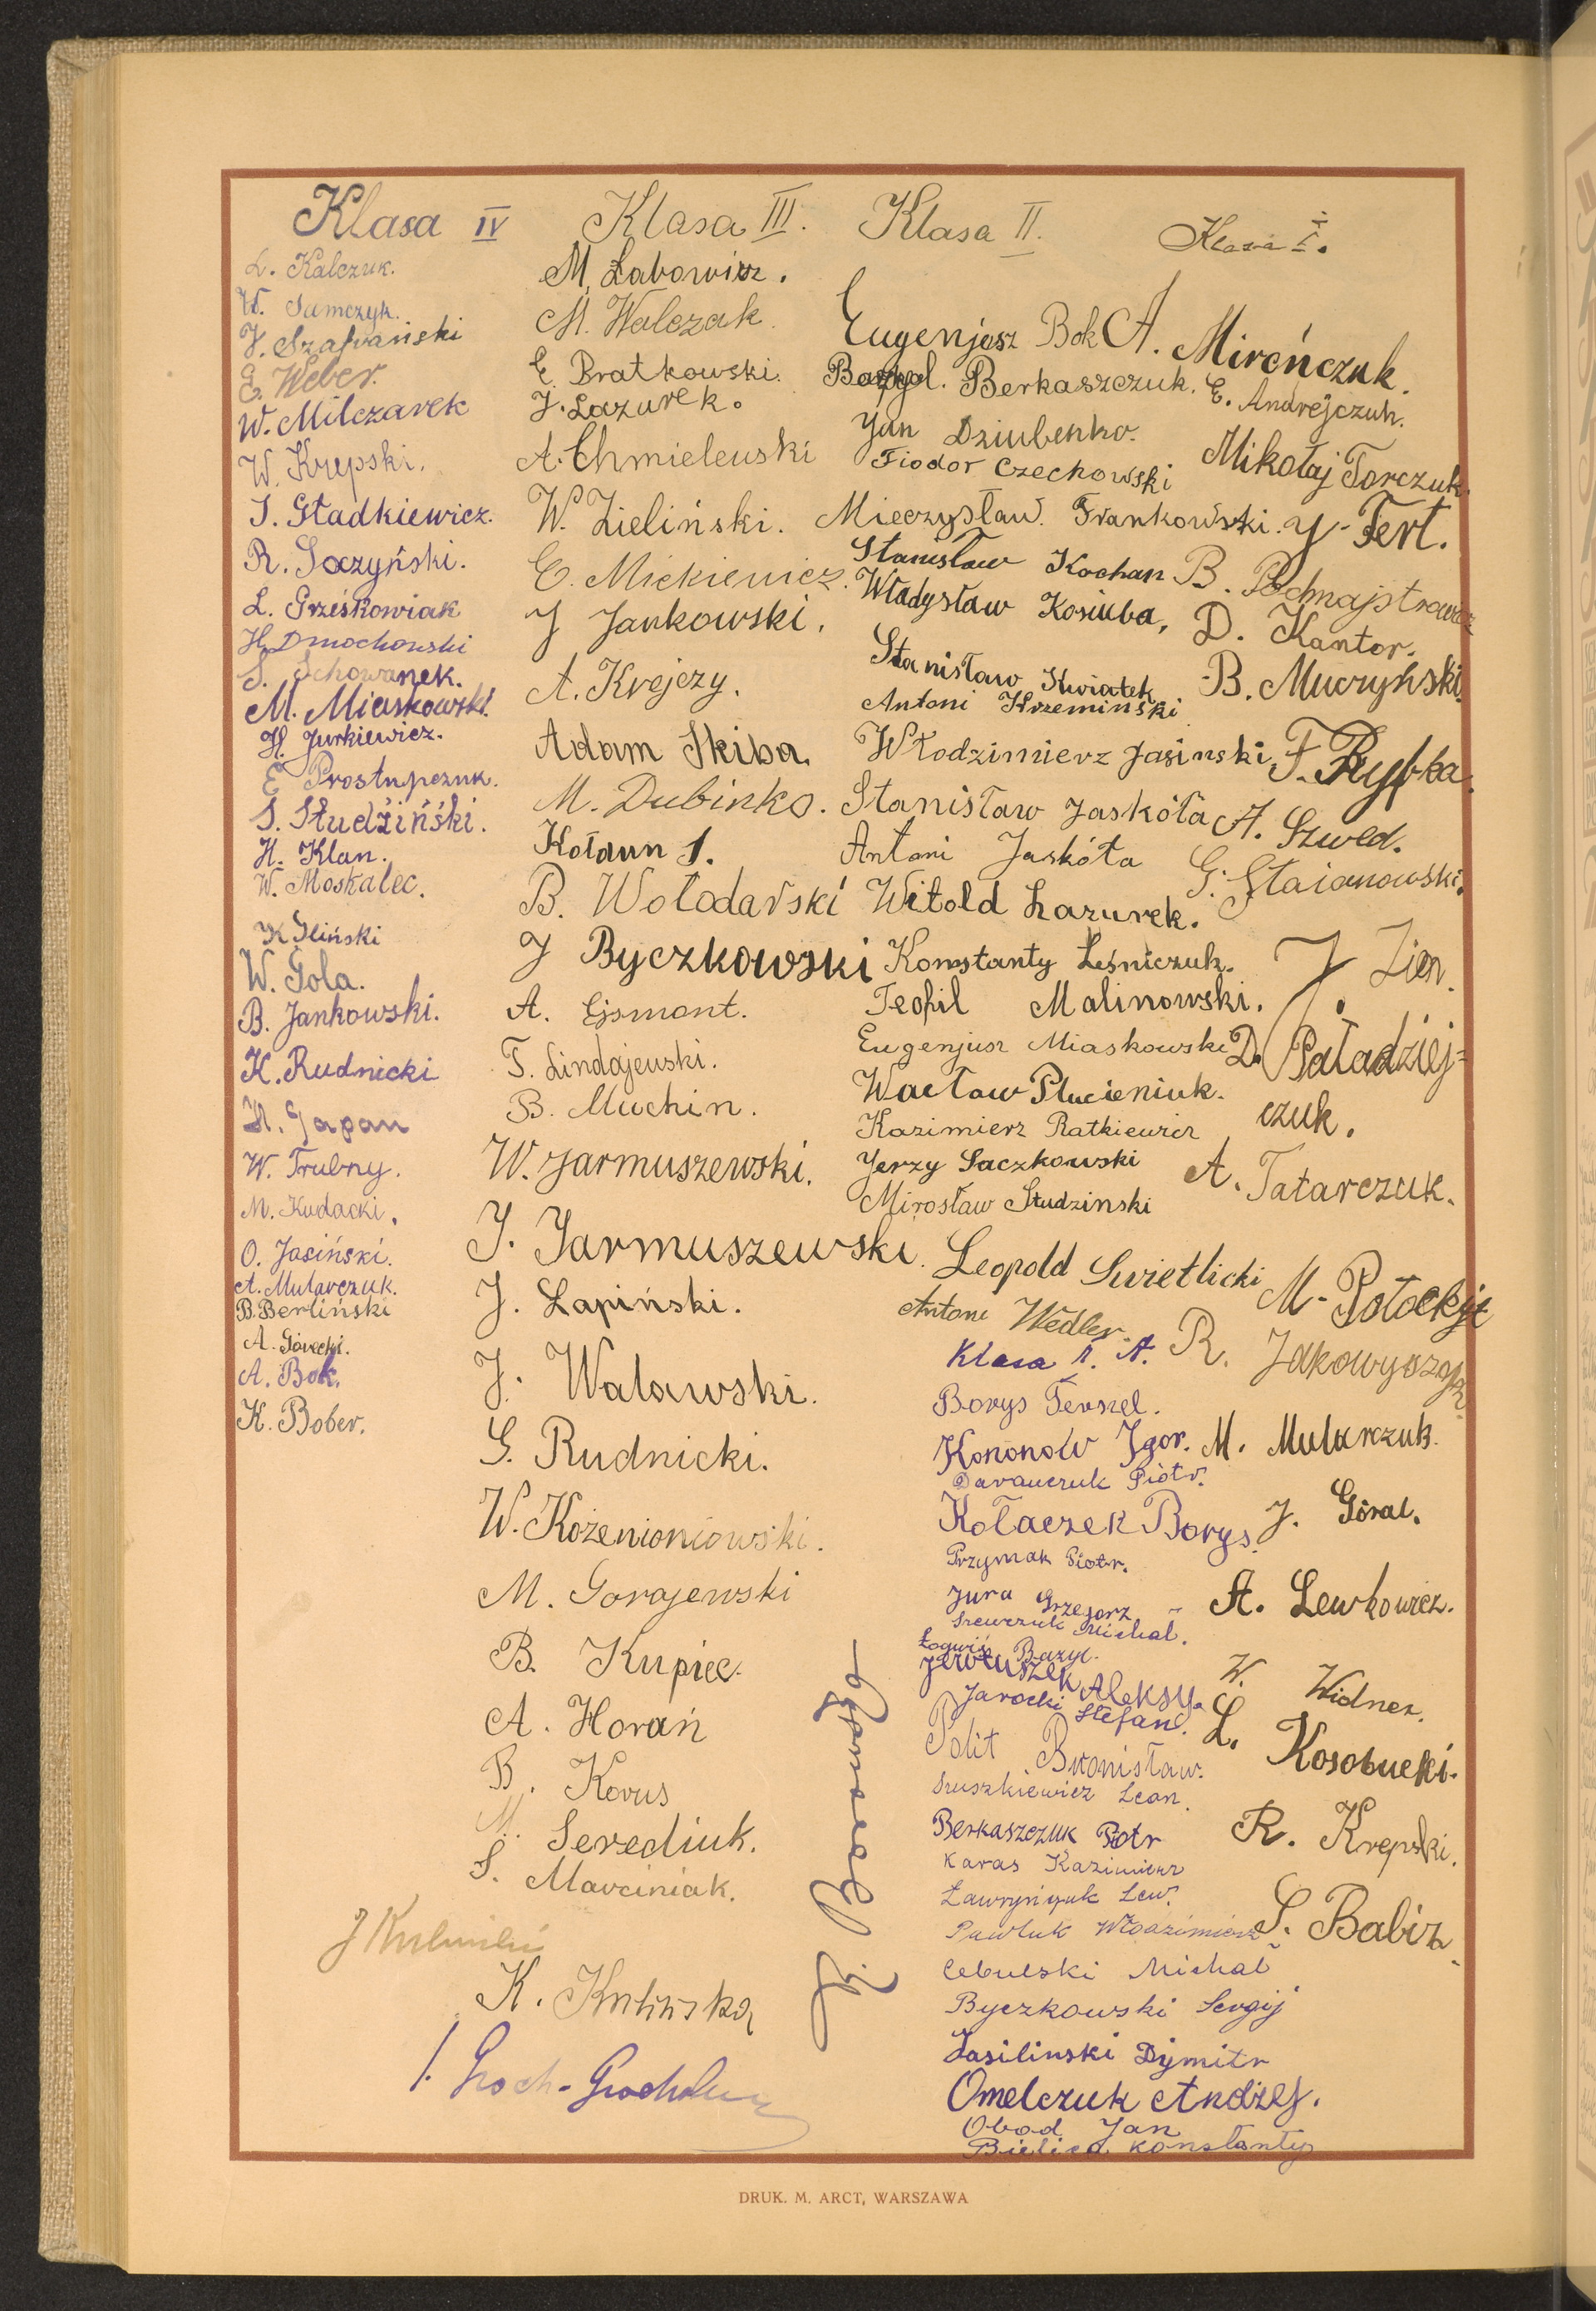 Klasa IV
L. Kalczuk.
W. Sumczyk.
J. Szafrański
E. Weber.
W. Milczarek
W. Krepski.
J. Gładkiewicz.
R. Soczyński.
L. Grześkowiak
H. Dmochowski
S. Schowanek.
M. Miaskowski.
H. Jurkiewicz.
E Prostupczuk.
S. Studźiński.
H. Klan.
W. Moskalec.
K Gliński
W. Gola.
B. Jankowski.
K. Rudnicki
H. Gapan
W. Trubny.
M. Kudacki.
O. Jasiński.
A. Mularczuk.
B. Berliński
A. Górecki.
A. Bok.
K. Bober.
Klasa III.
M. Łabowicz.
M. Walczak.
E. Bratkowski.
J. Lazurek.
A. Chmielewski
W. Zieliński.
E. Mickiewicz.
J Jankowski.
A. Krejczy.
Adam Skiba.
M. Dubinko.
Kołdun S.
B. Wołodarski
J Byczkowski
A. Ejsmont.
T. Lindajewski.
B. Muchin.
W. Jarmuszewski.
J. Jarmuszewski.
J. Łapiński.
J. Walawski.
G. Rudnicki.
W. Kożenioniowski.
M. Gorajewski
B. Kupiec.
A. Horań
B. Korus
M. Serediuk.
S. Marciniak.
K. Kulińska
Klasa II.
Eugenjusz Bok
Bazyl. Berkaszczuk.
Jan Dziubenko.
Fiodor Czechowski
Mieczysław. Frankowski.
Stanisław Kochan
Władysław Kosiuba,
Stanisław Kwiatek
Antoni Krzeminski
Włodzimierz Jasinski,
Stanisław Jaskóła
Antoni Jaskóła
Witold Lazurek.
Konstanty Leśniczuk.
Teofil Malinowski.
Eugenjusz Miaskowski
Wacław Plucieniuk.
Kazimierz Ratkiewicz
Jerzy Saczkowski
Mirosław Studzinski
Leopold Swietlicki
Antoni Wedler.
Klasa I. A.
Borys Terszel.
Kononow Jgor.
Darauczuk Piotr.
Kołaczek Borys.
Przymak Piotr.
Jura Grzegorz
Szewczuk Michał.
Łogwis Bazyl.
Jewtuszek Aleksy.
Jarocki Stefan.
Polit Bronisław.
Suszkiewicz Leon.
Berkaszczuk Piotr
Karas Kazimierz
Ławryńczuk Lew.
Pawluk Włodzimierz
Cebulski Michał
Byczkowski Sergij
Wasilinski Dymitr
Omelczuk Andżej.
Obod Jan
Bielica Konstanty
Klasa I.
A. Mirończuk.
E. Andrejczuk.
Mikołaj Torczuk
J. Fert.
B. Pochmajstrowicz
D. Kantor.
B. Muczyński.
F. Rybka.
A. Szwed.
G. Staianowski.
J. Lion.
D. Paładziej=
czuk.
A. Tatarczuk.
M. Potockij
R.
M. Mularczuk.
J. Góral.
A. Lewkowicz.
W. Widner.
L. Kosobucki.
R. Krepski.
S. Babicz
DRUK. M. ARCT, WARSZAWA